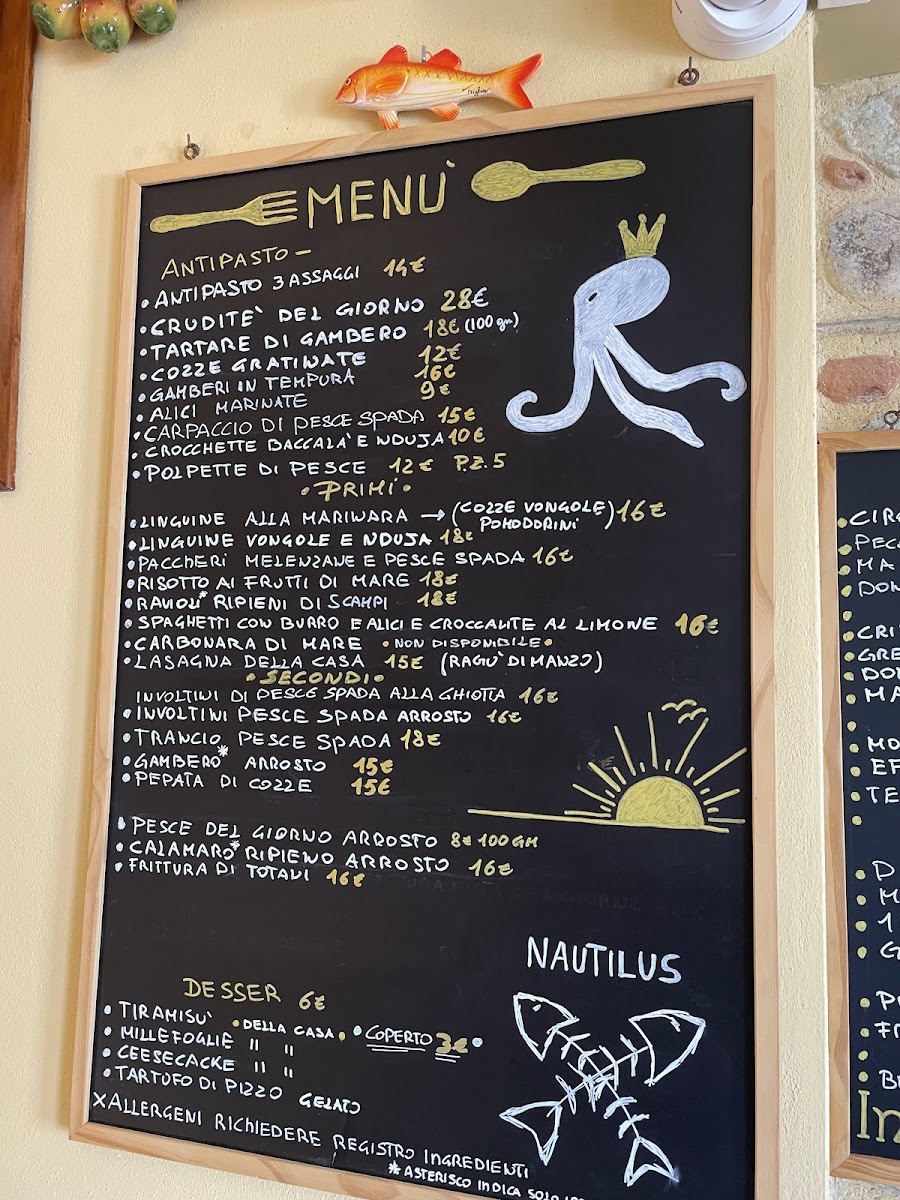 Triglia
MENÙ
ANTIPASTO -
• ANTIPASTO 3 ASSAGGI 14€
• CRUDITE' DEL GIORNO 28€
• TARTARE DI GAMBERO 18€ (100 gm)
• COZZE GRATINATE 12€
• GAMBERI IN TEMPURA 16€
• ALICI MARINATE 9€
• CARPACCIO DI PESCE SPADA 15€
• CROCCHETTE BACCALA' E NDUJA 10€
• POLPETTE DI PESCE 12€ P.Z. 5
• PRIMI •
• LINGUINE ALLA MARINARA → (COZZE VONGOLE POMODORINI) 16€
• LINGUINE VONGOLE E NDUJA 18€
• PACCHERI MELENZANE E PESCE SPADA 16€
• RISOTTO AI FRUTTI DI MARE 18€
• RAVIOLI* RIPIENI DI SCAMPI 18€
• SPAGHETTI CON BURRO E ALICI E CROCCANTE AL LIMONE 16€
• CARBONARA DI MARE • NON DISPONIBILE •
• LASAGNA DELLA CASA 15€ (RAGU' DI MANZO)
• SECONDI •
INVOLTINI DI PESCE SPADA ALLA GHIOTTA 16€
• INVOLTINI PESCE SPADA ARROSTO 16€
• TRANCIO PESCE SPADA 18€
• GAMBERO* ARROSTO 15€
• PEPATA DI COZZE 15€
• PESCE DEL GIORNO ARROSTO 8€ 100GM
• CALAMARO* RIPIENO ARROSTO 16€
• FRITTURA DI TOTANI 16€
NAUTILUS
DESSER 6€
• TIRAMISU' • DELLA CASA • • COPERTO 3€ •
• MILLEFOGLIE " "
• CEESECACKE " "
• TARTUFO DI PIZZO GELATO
X ALLERGENI RICHIEDERE REGISTRO INGREDIENTI
* ASTERISCO INDICA SOLO
• CIR
• PEC
• MA
• DON
•
• CRI
• GRE
• DO
• MA
• MO
• EF
• TE
•
• D
• M
• 1
• G
• P
• F
•
• B
In